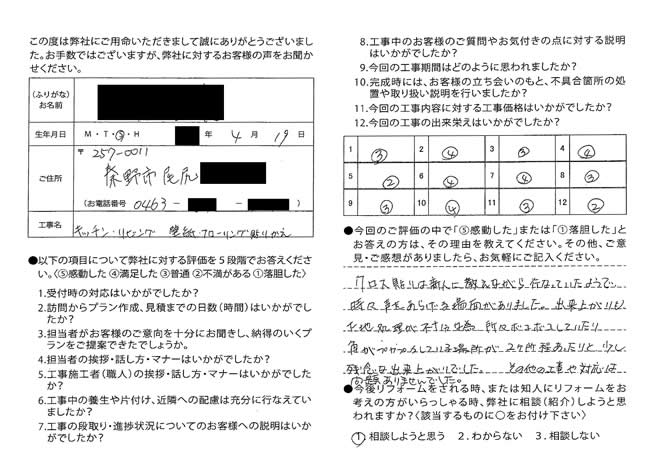 この度は弊社にご用命いただきまして誠にありがとうございまし
た。お手数ではございますが、弊社に対するお客様の声をお聞か
せください。
(ふりがな)
お名前
生年月日 M・T・S・H 年 4月 19日
ご住所 〒257-0011
秦野市尾尻
(お電話番号) 0463- -
工事名 キッチン・リビング 壁紙・フローリング貼りかえ
●以下の項目について弊社に対する評価を5段階でお答えくださ
い。〈⑤感動した ④満足した ③普通 ②不満がある ①落胆した〉
1.受付時の対応はいかがでしたか?
2.訪問からプラン作成、見積までの日数(時間)はいかがでし
たか?
3.担当者がお客様のご意向を十分にお聞きし、納得のいくプ
ランをご提案できたでしょうか。
4.担当者の挨拶・話し方・マナーはいかがでしたか?
5.工事施工者(職人)の挨拶・話し方・マナーはいかがでした
か?
6.工事中の養生や片付け、近隣への配慮は充分に行なえてい
ましたか?
7.工事の段取り・進捗状況についてのお客様への説明はいか
がでしたか?
8.工事中のお客様のご質問やお気付きの点に対する説明
はいかがでしたか?
9.今回の工事期間はどのように思われましたか?
10.完成時には、お客様の立ち会いのもと、不具合箇所の処
置や取り扱い説明を行いましたか?
11.今回の工事内容に対する工事価格はいかがでしたか?
12.今回の工事の出来栄えはいかがでしたか?
1 ③ 2 ④ 3 ③ 4 ④
5 ② 6 ④ 7 ④ 8 ③
9 ③ 10 ④ 11 ③ 12 ②
●今回のご評価の中で「⑤感動した」または「①落胆した」と
お答えの方は、その理由を教えてください。その他、ご意
見・ご感想がありましたら、お気軽にご記入ください。
クロス貼りは新人に教えながら行なっていたようで、
時々声をあらげる場面がありました。出来上がりも
下地処理が不十分な為、所々ボコボコしていたり
角が していた場所が2ケ所程あったりと少し
残念な出来上がりでした。 その他の工事や対応は
問題ありませんでした。
●今後リフォームをされる時、または知人にリフォームをお
考えの方がいらっしゃる時、弊社に相談(紹介)しようと思
われますか?〈該当するものに○をお付け下さい〉
① 相談しようと思う 2.わからない 3.相談しない